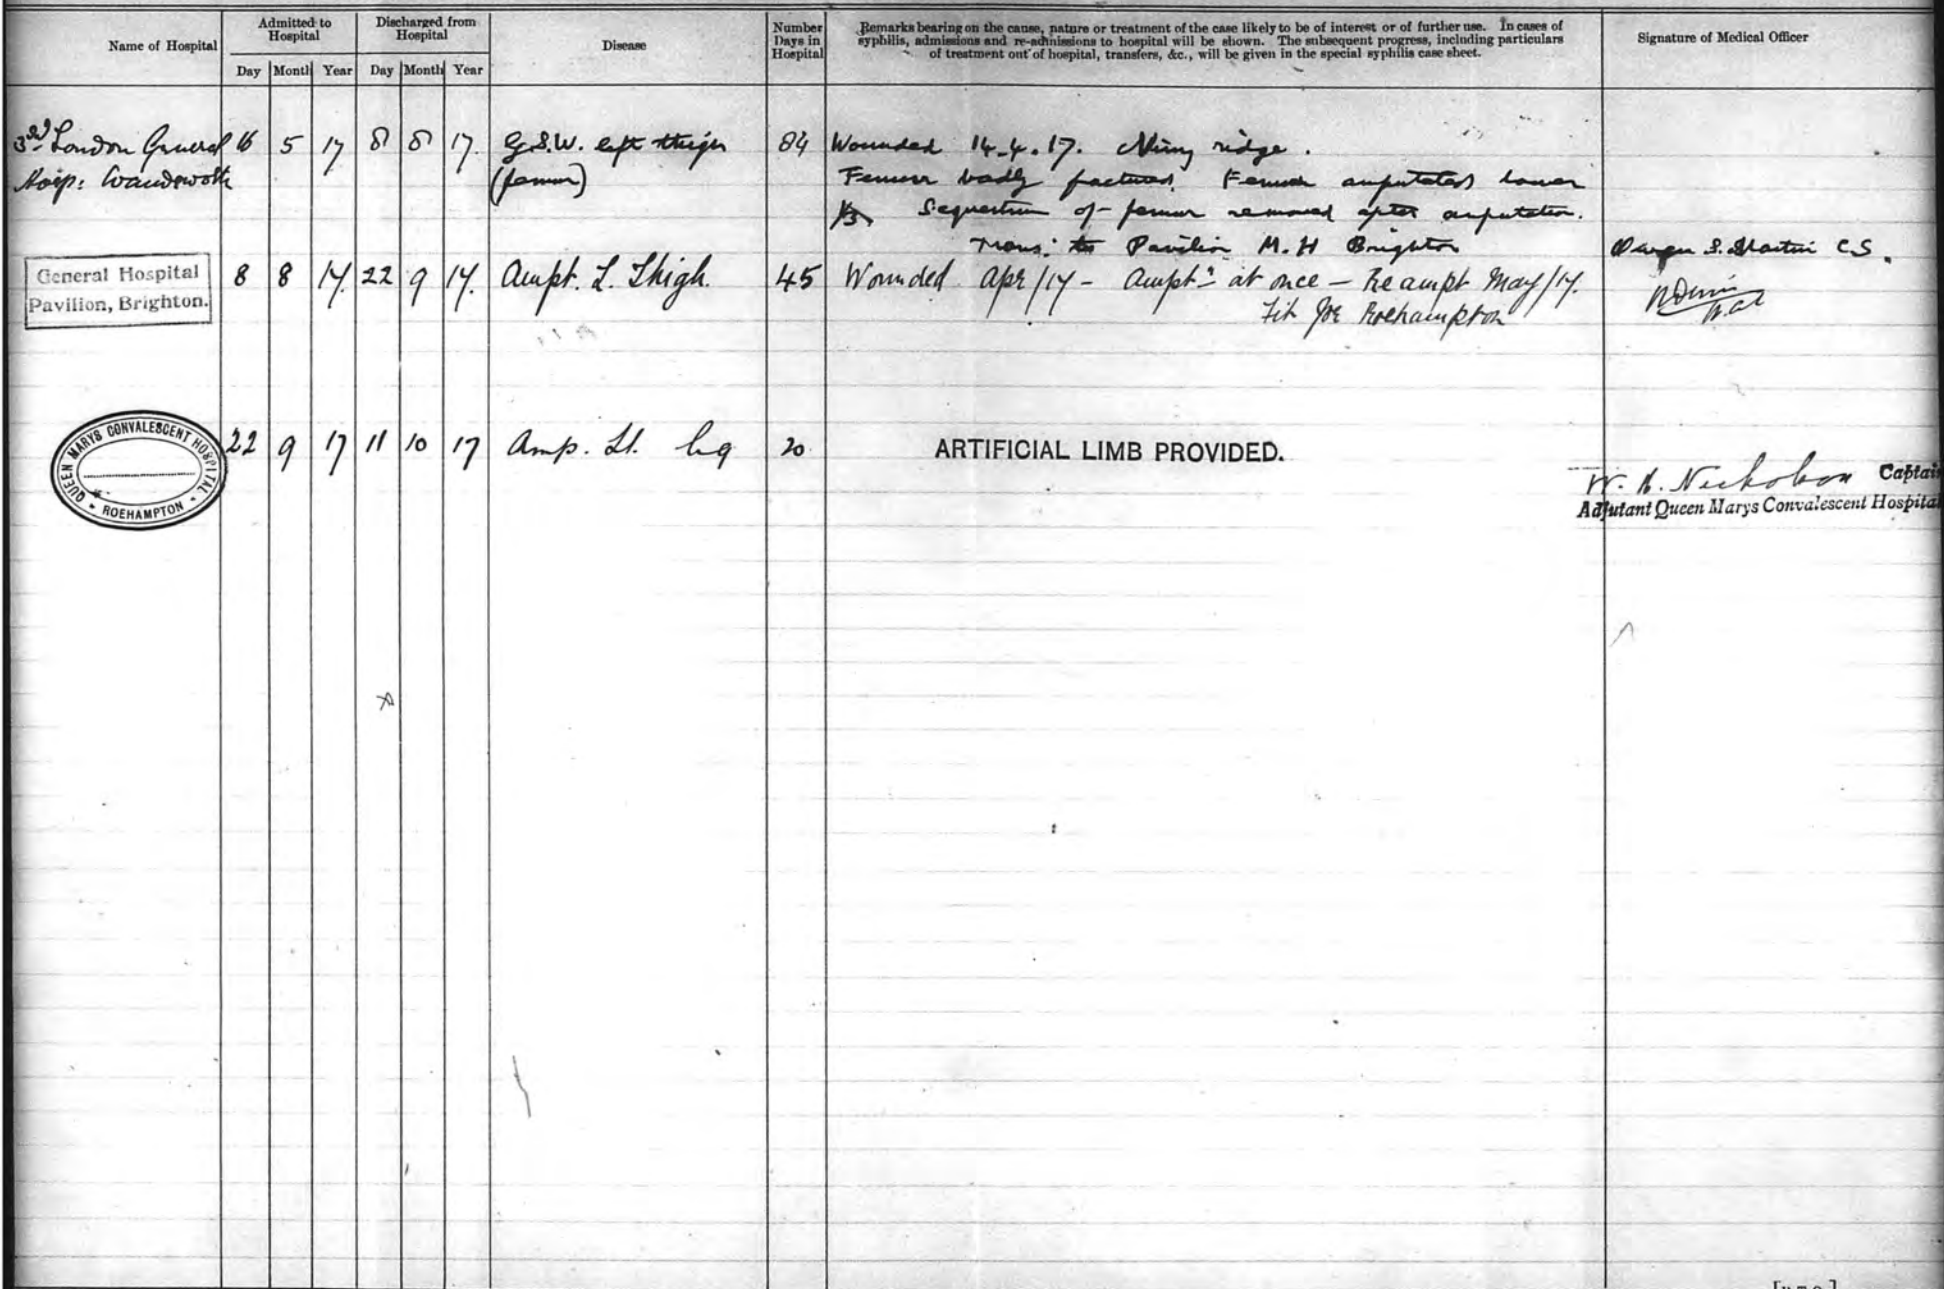 Name of Hospital
Admitted to Hospital
Day Month Year
Discharged from Hospital
Day Month Year
Disease
Number Days in Hospital
Remarks bearing on the cause, nature or treatment of the case likely to be of interest or of further use. In cases of
syphilis, admissions and re-admissions to hospital will be shown. The subsequent progress, including particulars
of treatment out of hospital, transfers, &c., will be given in the special syphilis case sheet.
Signature of Medical Officer
3rd London General 16 5 17 8 8 17. G.S.W. left thigh 84 Wounded 14.4.17. ridge.
Hosp: Wandsworth (femur) Femur badly fractured. Femur amputated lower
1/3 Sequestrum of femur removed after amputation.
Trans: to Pavilion M.H Brighton S. Martin C.S.
General Hospital
Pavilion, Brighton.
8 8 17. 22 9 17. Ampt. L. Thigh. 45 Wounded Apr/17 - Ampt.n at once - Reampt May/17.
Fit for Roehampton
QUEEN MARYS CONVALESCENT HOSPITAL
ROEHAMPTON
22 9 17 11 10 17 Amp. Lt. Leg 20 ARTIFICIAL LIMB PROVIDED.
W. H. Nicholson Captain
Adjutant Queen Marys Convalescent Hospital